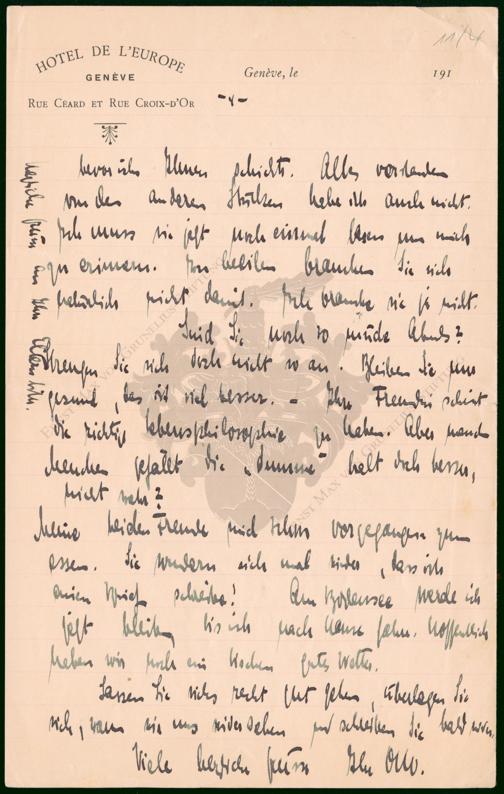 11/4
HOTEL DE L'EUROPE
GENÈVE
RUE CÉARD ET RUE CROIX-D'OR
Genève, le 191
-4-
bevor ich Ihnen schickte. Alles
von den anderen Stücken habe ich auch nicht.
Ich muss sie jetzt noch einmal lesen um mich
zu erinnern. beeilen brauchen Sie sich
natürlich nicht damit. Ich brauche sie ja nicht.
Sind Sie noch so müde Abends?
Strengen Sie sich doch nicht so an. Bleiben Sie uns
gesund, das ist viel besser. – Ihre Freundin scheint
die richtige Lebensphilosophie zu haben. Aber manch
Menschen gefällt die „Dumme" halt doch besser,
nicht wahr?
Meine beiden Freunde sind schon vorgegangen zum
essen. Sie wundern sich mal wieder, dass ich
einen Brief schreibe! Am Bodensee werde ich
jetzt bleiben bis ich nach Hause fahre. Hoffentlich
haben wir noch ein bischen gutes Wetter.
Lassen Sie sichs recht gut gehen, überlegen Sie
sich, wann wir uns wiedersehen und schreiben Sie bald wieder.
Viele herzliche Grüsse Ihr Otto.
Herzliche Grüsse Ihr
ERNST MAX VON GRUNELIUS-STIFTUNG